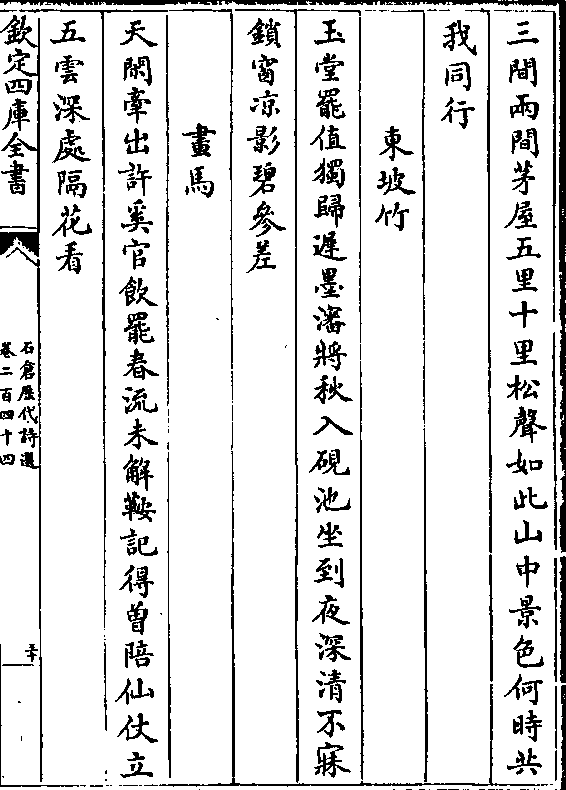 三間兩間茅屋五里十里松聲如此山中景色何時共
我同行
東坡竹
玉堂罷值獨歸遲墨瀋將秋入硯池坐到夜深清不寐
鎖窗凉影碧參差
畫馬
天閑牽出許奚官飲罷春流未解鞍記得曾陪仙仗立
五雲深處隔花看
欽定四庫全書
石倉歷代詩選
卷二百四十四